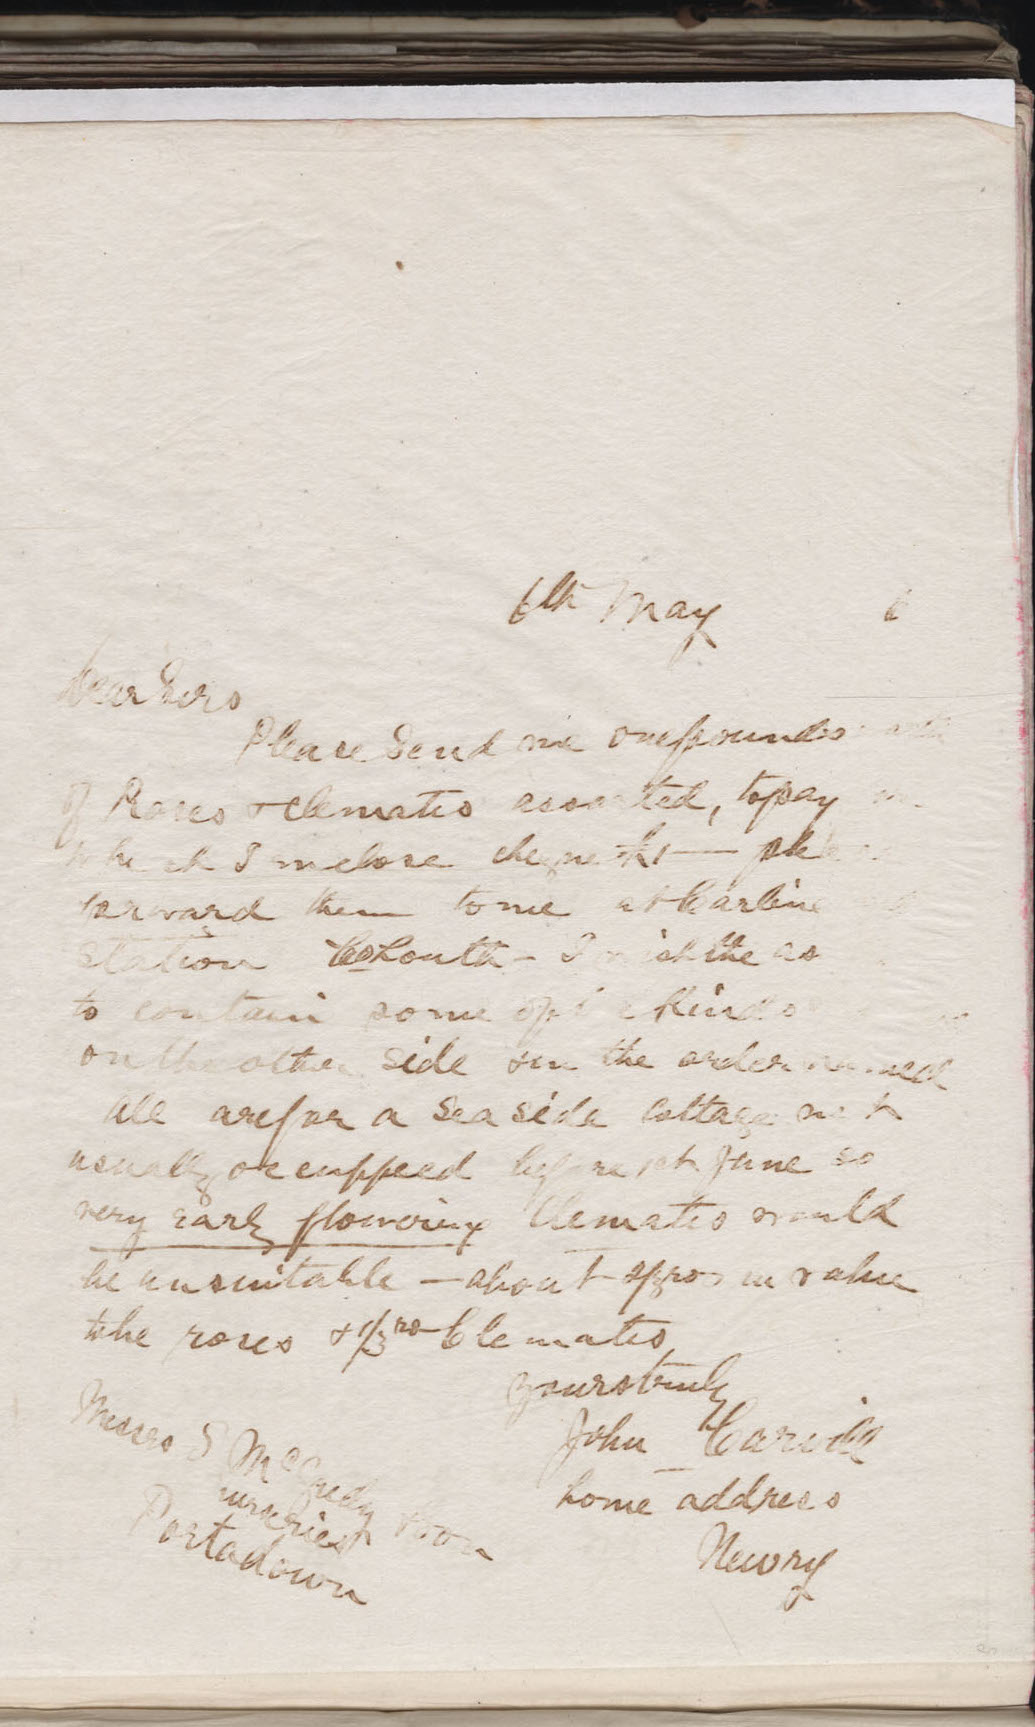 6th May 6
Dear Sirs
Please send me one pounds
of Roses & Clematis assorted, to pay
which I inclose cheque £1 —
forward them to me at Carline
station Co Louth – I wish the as
to contain some of the kinds
on the other side & in the order named
All are for a sea side cottage not
usually occuppeed before 1st June so
very early flowering Clematis would
be unsuitable – about in value
to be roses & Clematis
yours truly
John Carvill
home address
Newry
Messrs S McGredy & Son
nurseries
Portadown